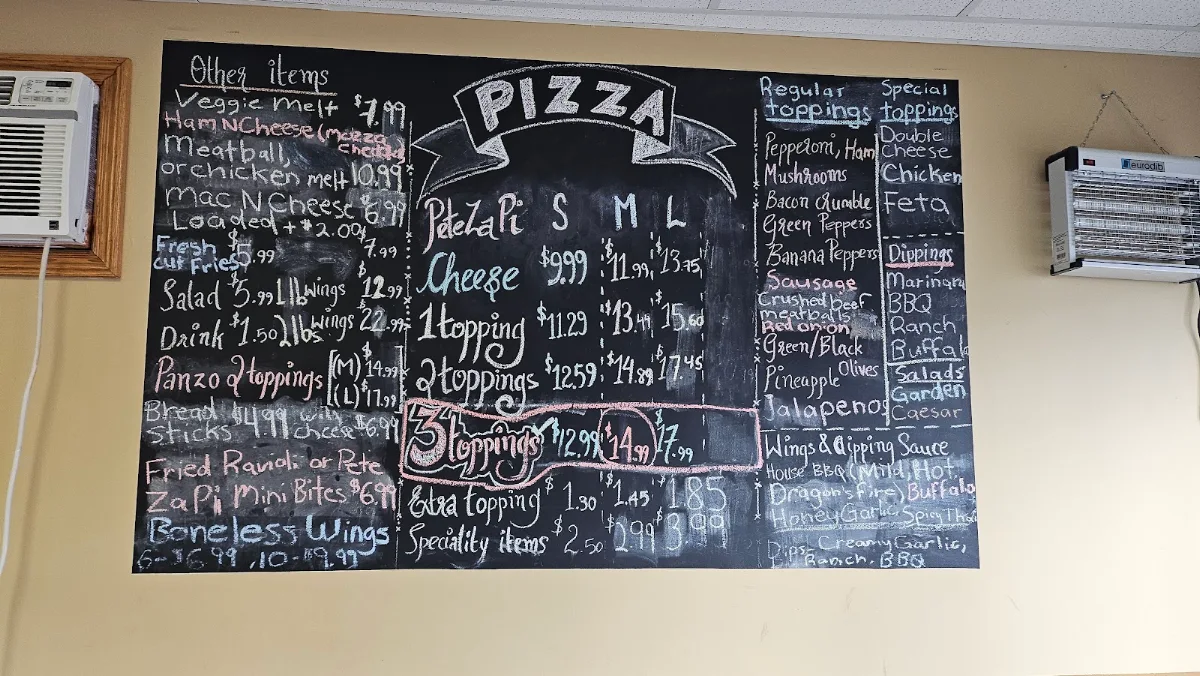 Other items
Veggie Melt $7.99
Ham N Cheese (mozza
cheddar)
Meatball,
or chicken melt 10.99
Mac N Cheese 6.99
Loaded + $2.00
Fresh
cut Fries $5.99 $7.99
Salad $5.99 1 lb wings $12.99
Drink $1.50 2 lbs wings $22.99
Panzo 2 toppings (M) $14.99
(L) $17.99
Bread
sticks $4.99 with
cheese $6.99
Fried Ravioli or Pete
Za Pi Mini Bites $6.99
Boneless Wings
6-$6.99, 10-$9.99
PIZZA
PeteZaPi S M L
Cheese $9.99 $11.99 $13.75
1 topping $11.29 $13.49 $15.60
2 toppings $12.59 $14.89 $17.45
3 toppings $12.99 $14.99 $17.99
Extra topping $1.30 $1.45 $1.85
Speciality items $2.50 $2.99 $3.99
Regular
toppings
Pepperoni, Ham
Mushrooms
Bacon crumble
Green Peppers
Banana Peppers
Sausage
Crushed beef
meatballs
Red onion
Green/Black
Olives
Pineapple
Jalapenos
Special
toppings
Double
Cheese
Chicken
Feta
Dippings
Marinara
BBQ
Ranch
Buffalo
Salads
Garden
Caesar
Wings & dipping Sauce
House BBQ (Mild, Hot
Dragon's fire, Buffalo
Honey Garlic, Spicy Thai
Dips- Creamy Garlic,
Ranch, BBQ
eurodib